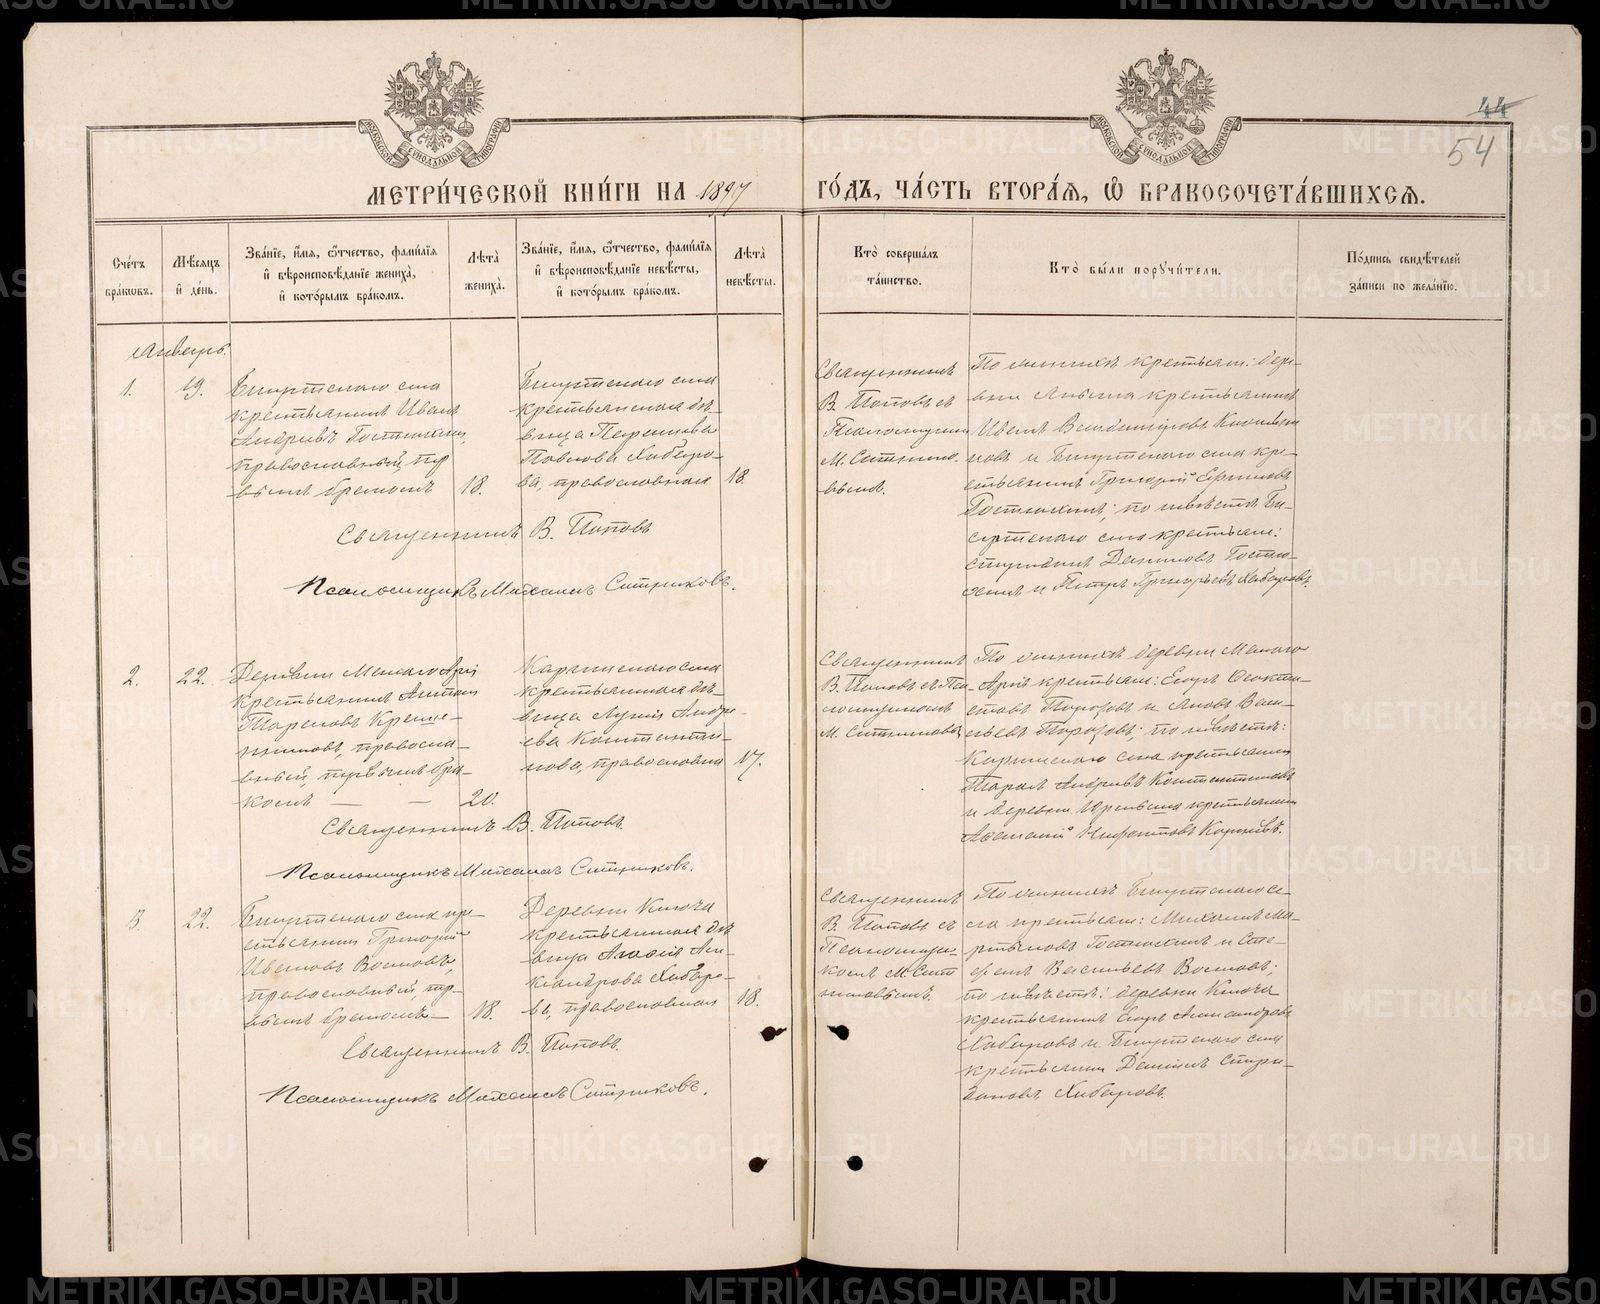 МОСКОВСКОЙ СѴНОДАЛЬНОЙ ТИПОГРАФІИ
МОСКОВСКОЙ СѴНОДАЛЬНОЙ ТИПОГРАФІИ
44
54
МЕТРИ́ЧЕСКОЙ КНИ́ГИ НА 1897
ГО́ДЪ, ЧА́СТЬ ВТОРА́Я, Ѿ БРАКОСОЧЕТА́ВШИХСЯ.
Сче́тъ
бра́ковъ.
Мѣ́сяцъ
и҆ де́нь.
Зва́ніе, и҆́мя, ѻ҆́тчество, фами́лія
и҆ вѣроисповѣ́даніе жениха̀,
и҆ кото́рымъ бра́комъ.
Лѣ́та
жениха̀.
Зва́ніе, и҆́мя, ѻ҆́тчество, фами́лія
и҆ вѣроисповѣ́даніе невѣ́сты,
и҆ кото́рымъ бра́комъ.
Лѣ́та
невѣ́сты.
Кто̀ соверша́лъ
та́инство.
Кто̀ бы́ли пορꙋчи́тели.
По́дпись свидѣ́телей
за́писи по жела́нію.
Январь.
1.
19.
Бисертскаго села
крестьянинъ Иванъ
Андреевъ Гостюхинъ,
православный, пер
вымъ бракомъ
18.
Бисертскаго села
крестьянская дѣ-
вица
Павлова Хабаро-
ва, православная
18.
Священникъ
В. Поповъ съ
Псаломщик
М. Ситнико-
вымъ.
По женихѣ крестьян: дере-
вни крестьянинъ
Иванъ
новъ и Бисертскаго села кре-
стьянинъ Григорій
Гостюхинъ; по невѣстѣ Би-
сертскаго села крестьян:
Гостю-
хинъ и Петръ Григорьевъ Хабаровъ.
Священникъ В. Поповъ
Псаломщикъ Михаилъ Ситниковъ.
2.
22.
Деревни Малаго Аріи
крестьянинъ
нниковъ, правосла-
вный, первымъ бра-
комъ — —
20.
Каргинскаго села
крестьянская дѣ-
вица Андре-
ева Константи-
нова, православна
17.
Священникъ
В. Поповъ съ Пса-
ломщикомъ
М. Ситниковы
По женихѣ деревни Малаго
Аріи крестьян: Егоръ Ѳеокти-
стовъ Порозовъ и Васи-
льевъ Порозовъ; по невѣстѣ:
Каргинскаго села крестьянин
Андреевъ Константиновъ
и деревни крестьянин
Священникъ В. Поповъ.
Псаломщикъ Михаилъ Ситниковъ.
3.
22.
Бисертскаго села кре-
стьянинъ Григорій
Ивановъ Волковъ,
православный, пер-
вымъ бракомъ —
18.
Деревни Ключа
крестьянская дѣ
вица Агафія Але
ксандрова Хабаро-
ва, православная
18.
Священникъ
В. Поповъ съ
Псаломщи-
комъ М. Сит
никовымъ.
По женихѣ Бисертскаго се-
ла крестьян: Михаилъ Ма-
ртыновъ Гостюхинъ и Сте-
фанъ Васильевъ Волковъ;
по невѣстѣ: деревни Ключа
крестьянинъ Егоръ Александровъ
Хабаровъ и Бисертскаго села
крестьянинъ Даніилъ Спири-
доновъ Хабаровъ.
Священникъ В. Поповъ.
Псаломщикъ Михаилъ Ситниковъ.
METRIKI.GASO-URAL.RU